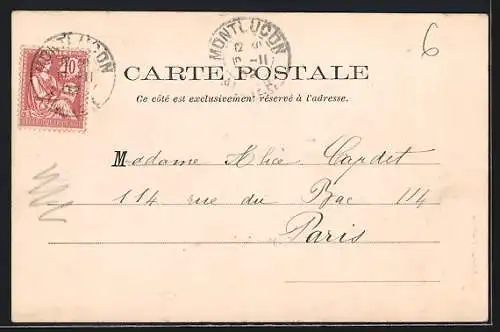 MONTLUÇON
10
MONTLUÇON
6
CARTE POSTALE
Ce côté est exclusivement réservé à l'adresse.
Madame Alice Cardet
114 rue du Bac 114
Paris